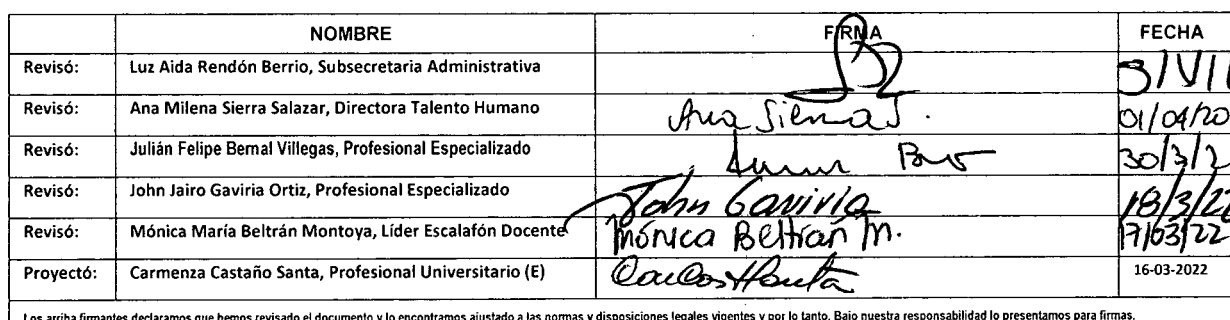 NOMBRE FIRMA FECHA
Revisó: Luz Aida Rendón Berrio, Subsecretaria Administrativa
Revisó: Ana Milena Sierra Salazar, Directora Talento Humano Ana Sierra S. 01/04/20
Revisó: Julián Felipe Bernal Villegas, Profesional Especializado 30/3/2
Revisó: John Jairo Gaviria Ortiz, Profesional Especializado John Gaviria 18/3/22
Revisó: Mónica María Beltrán Montoya, Líder Escalafón Docente Mónica Beltrán M. 17/03/22
Proyectó: Carmenza Castaño Santa, Profesional Universitario (E) 16-03-2022
Los arriba firmantes declaramos que hemos revisado el documento y lo encontramos ajustado a las normas y disposiciones legales vigentes y por lo tanto, Bajo nuestra responsabilidad lo presentamos para firmas.